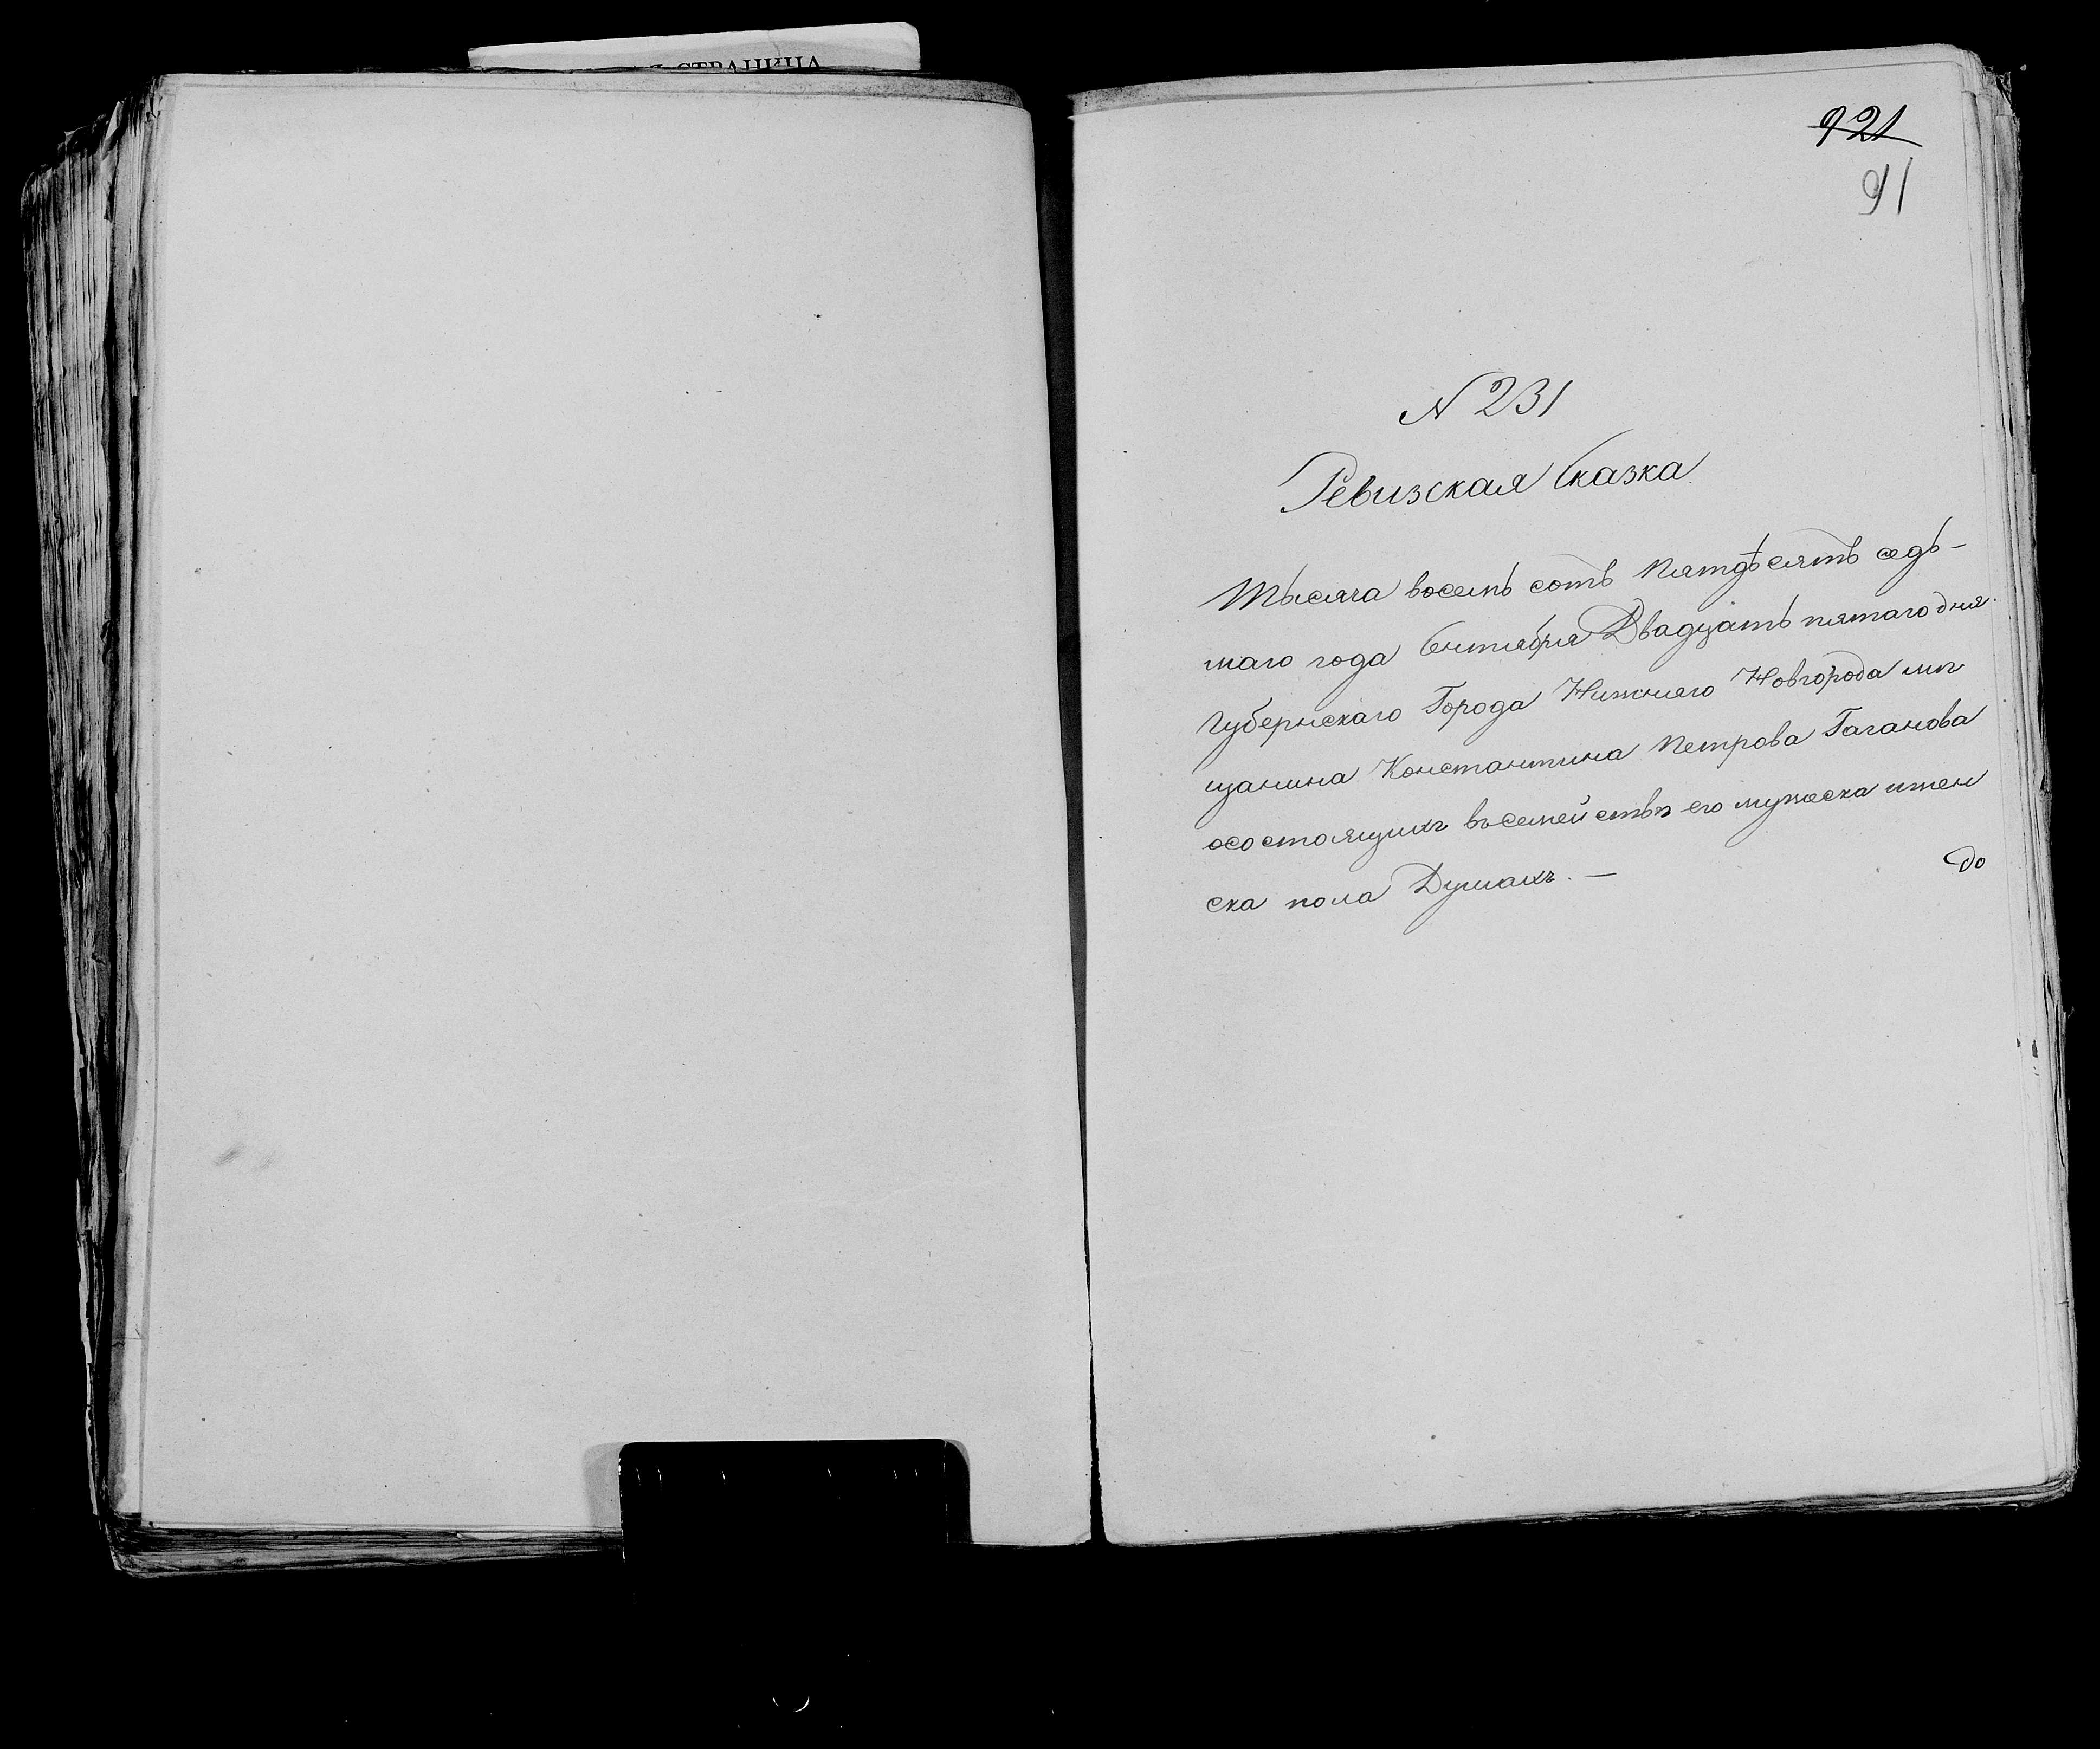 СТРАНИЦА
921
91
N 231
Ревизская Сказка
Тысяча восемь сотъ Пятдѣсятъ седь-
маго года Сентября Двадцать пятаго дня.
Губернскаго Города Нижняго Новгорода мѣ
щанина Константина Петрова Гаганова
осостоящихъ въсемействѣ его мужеска ижен
ска пола Душахъ. —
До